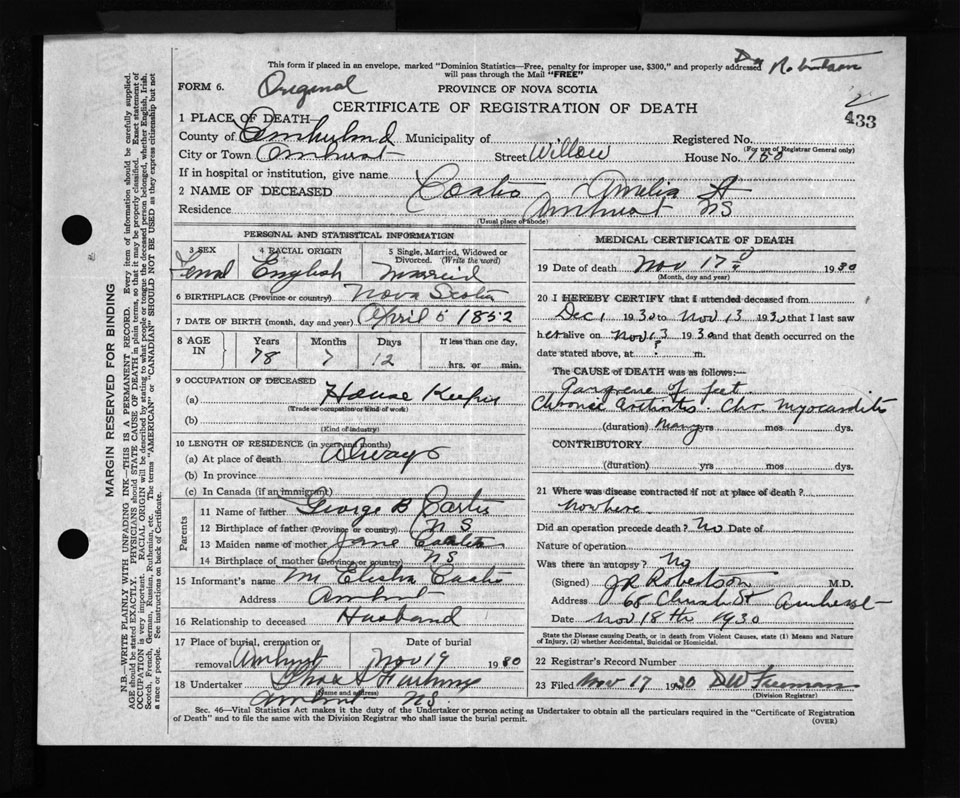 This form if placed in an envelope, marked "Dominion Statistics—Free, penalty for improper use, $300," and properly addressed Dr Robertson
will pass through the Mail "FREE"
FORM 6. Original PROVINCE OF NOVA SCOTIA
CERTIFICATE OF REGISTRATION OF DEATH
433
1 PLACE OF DEATH—
County of Municipality of Registered No.
(For use of Registrar General only)
City or Town Amherst Street Willow House No. 150
If in hospital or institution, give name
2 NAME OF DECEASED Amelia A
Residence Amherst NS
(Usual place of abode)
PERSONAL AND STATISTICAL INFORMATION
3 SEX 4 RACIAL ORIGIN 5 Single, Married, Widowed or Divorced. (Write the word)
English
6 BIRTHPLACE (Province or country) Nova Scotia
7 DATE OF BIRTH (month, day and year) April 5 1852
8 AGE IN Years Months Days If less than one day,
78 7 12 hrs. or min.
9 OCCUPATION OF DECEASED
(a) House Keeper
(Trade or occupation or kind of work)
(b)
(Kind of industry)
10 LENGTH OF RESIDENCE (in years and months)
(a) At place of death Always
(b) In province
(c) In Canada (if an immigrant)
Parents
11 Name of father George B
12 Birthplace of father (Province or country) NS
13 Maiden name of mother Jane
14 Birthplace of mother (Province or country) NS
15 Informant's name M Elisha
Address Amherst
16 Relationship to deceased Husband
17 Place of burial, cremation or removal Amherst Date of burial Nov 19 1930
18 Undertaker
(Name and address)
Amherst NS.
MEDICAL CERTIFICATE OF DEATH
19 Date of death Nov 17 1930
(Month, day and year)
20 I HEREBY CERTIFY that I attended deceased from
Dec 1 1930 to Nov 13 1930 that I last saw
her alive on Nov 13 1930 and that death occurred on the
date stated above, at ? m.
The CAUSE OF DEATH was as follows:—
Gangrene of feet
Chronic Chr. Myocarditis
(duration) Many yrs mos dys.
CONTRIBUTORY
(duration) yrs mos dys.
21 Where was disease contracted if not at place of death?
Nowhere.
Did an operation precede death? No Date of
Nature of operation
Was there an autopsy? No
(Signed) JR Robertson M.D.
Address 68 Church St Amherst
Date Nov 18th 1930
State the Disease causing Death, or in death from Violent Causes, state (1) Means and Nature
of Injury, (2) whether Accidental, Suicidal or Homicidal.
22 Registrar's Record Number
23 Filed Nov 17 1930 DW
(Division Registrar)
Sec. 46—Vital Statistics Act makes it the duty of the Undertaker or person acting as Undertaker to obtain all the particulars required in the "Certificate of Registration
of Death" and to file the same with the Division Registrar who shall issue the burial permit.
(OVER)
MARGIN RESERVED FOR BINDING
N.B.—WRITE PLAINLY WITH UNFADING INK—THIS IS A PERMANENT RECORD. Every item of information should be carefully supplied.
AGE should be stated EXACTLY. PHYSICIANS should STATE CAUSE OF DEATH in plain terms, so that it may be properly classified. Exact statement of
OCCUPATION is very important. RACIAL ORIGIN will be described by stating to what people or tongue the deceased person belonged, whether English, Irish,
Scotch, French, German, Russian, Ruthenian, etc. The terms "AMERICAN" or "CANADIAN" SHOULD NOT BE USED as they express citizenship but not
a race or people. See instructions on back of Certificate.